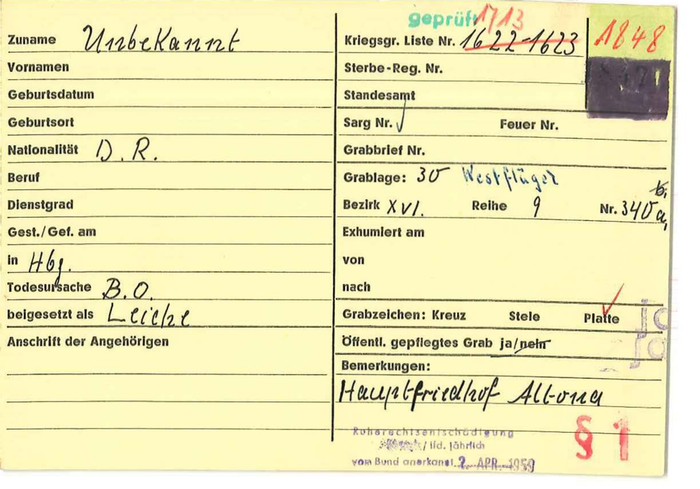 geprüft 1713
Zuname Unbekannt
Kriegsgr. Liste Nr. 1622-1623 1848
Vornamen
Sterbe-Reg. Nr.
Geburtsdatum
Standesamt
Geburtsort
Sarg Nr. Feuer Nr.
Nationalität D. R.
Grabbrief Nr.
Beruf
Grablage: 30 Westflügel
Dienstgrad
Bezirk XVI. Reihe 9 Nr. 340 a, b,
Gest./Gef. am
Exhumiert am
in Hbg.
von
Todesursache B.O.
nach
beigesetzt als Leiche
Grabzeichen: Kreuz Stele Platte
Anschrift der Angehörigen
Öffentl. gepflegtes Grab ja/nein
Bemerkungen:
Hauptfriedhof Altona
Ruherechtsentschädigung
/ lfd. jährlich
vom Bund anerkannt 2. APR. 1959
§ 1